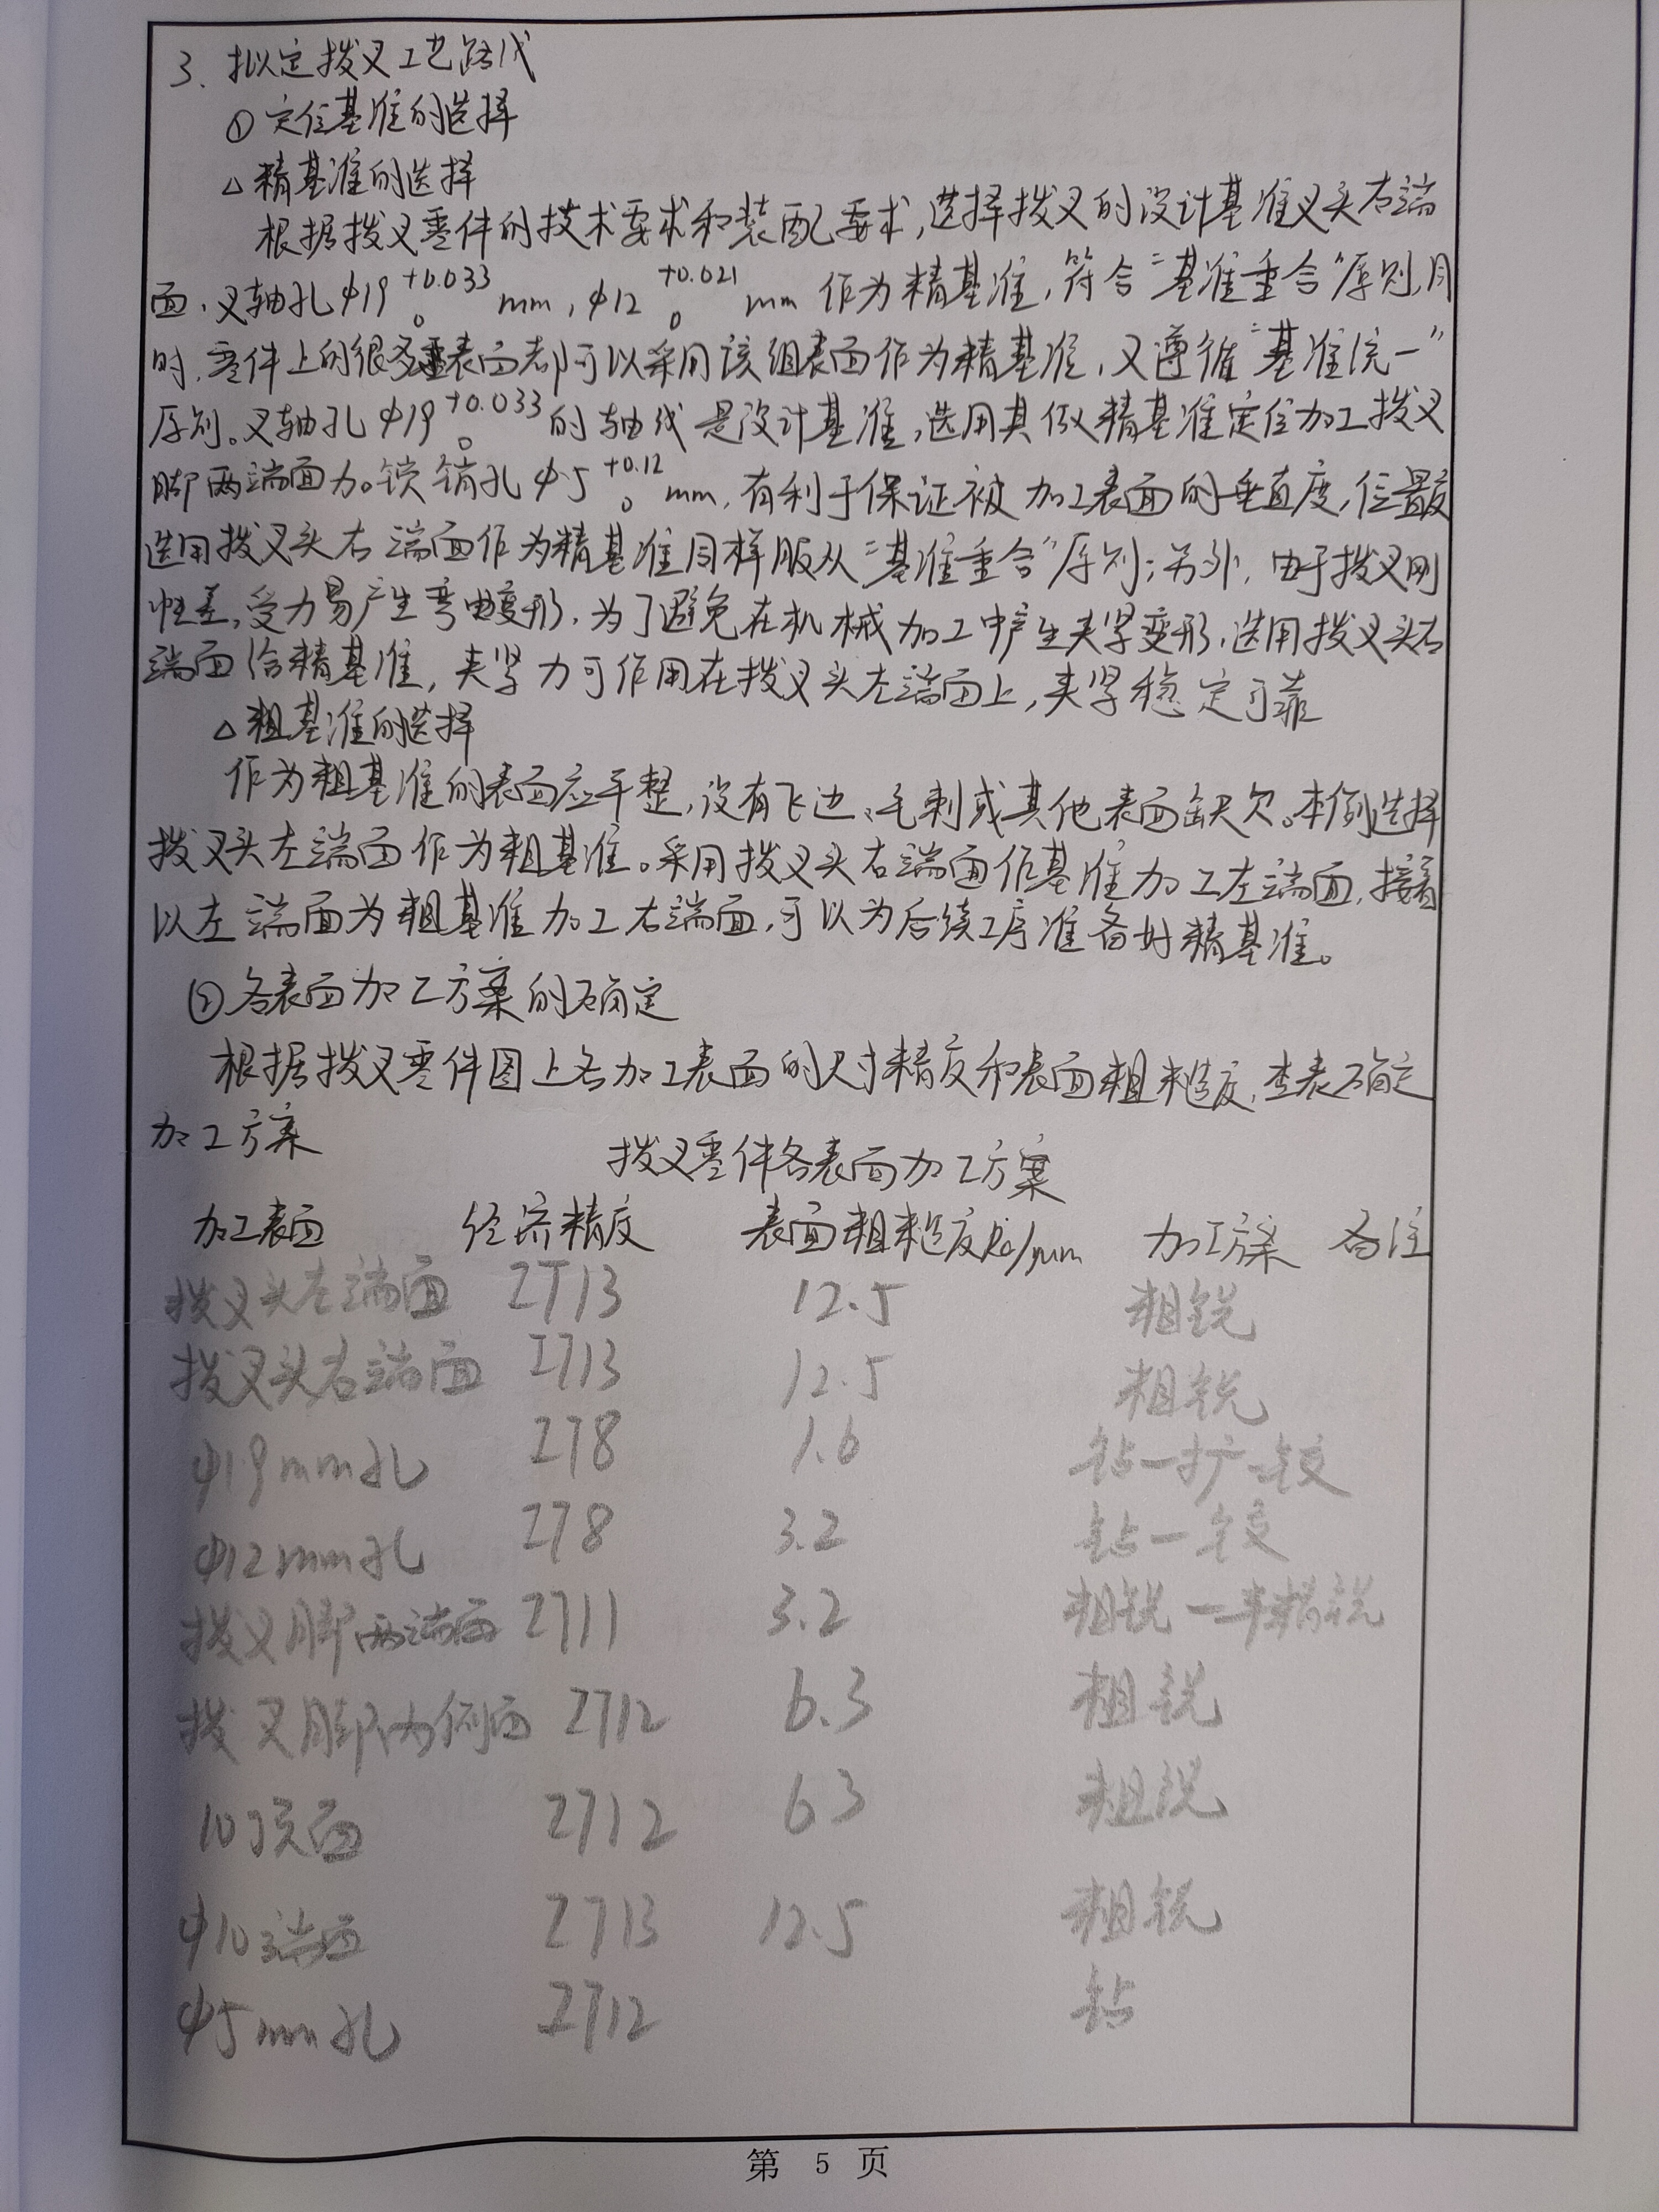 3、拟定拨叉工艺路线
① 定位基准的选择
△ 精基准的选择
根据拨叉零件的技术要求和装配要求,选择拨叉的设计基准叉头右端
面、叉轴孔φ19 +0.033 0 mm,φ12 +0.021 0 mm 作为精基准,符合“基准重合”原则,同
时,零件上的很多表面都可以采用该组表面作为精基准,又遵循“基准统一”
原则。叉轴孔φ19 +0.033 0 的轴线是设计基准,选用其做精基准定位加工拨叉
脚两端面加。锁销孔φ5 +0.12 0 mm,有利于保证被加工表面的垂直度,位置度
选用拨叉头右端面作为精基准同样服从“基准重合”原则;另外,由于拨叉刚
性差,受力易产生弯曲变形,为了避免在机械加工中产生夹紧变形,选用拨叉头右
端面给精基准,夹紧力可作用在拨叉头左端面上,夹紧稳定可靠
△ 粗基准的选择
作为粗基准的表面应平整,没有飞边、毛刺或其他表面缺欠。本例选择
拨叉头左端面作为粗基准。采用拨叉头右端面作基准加工左端面,接着
以左端面为粗基准加工右端面,可以为后续工序准备好精基准。
② 各表面加工方案的确定
根据拨叉零件图上各加工表面的尺寸精度和表面粗糙度,查表确定
加工方案
拨叉零件各表面加工方案
加工表面 经济精度 表面粗糙度Ra/μm 加工方案 备注
拨叉头左端面 IT13 12.5 粗铣
拨叉头右端面 IT13 12.5 粗铣
φ19mm孔 IT8 1.6 钻—扩—铰
φ12mm孔 IT8 3.2 钻—铰
拨叉脚两端面 IT11 3.2 粗铣—半精铣
拨叉脚内侧面 IT12 6.3 粗铣
10顶面 IT12 6.3 粗铣
φ10端面 IT13 12.5 粗铣
φ5mm孔 IT12 钻
第 5 页